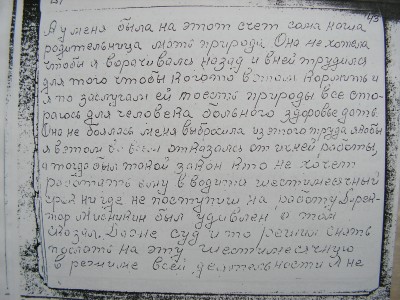 А у меня была на этот счет сама наша
родительница мать природа. Она не хотела
чтобы я ворачивался назад и в ней трудился
для того чтобы кого то в этом кормить и
я по заслугам ей тоесть природы все ста-
раюсь для человека больного здоровье дать.
Она не боялась меня выбросила из этого труда якобы
я в этом отказалсь от ихней работы,
а тогда был такой закон кто не хочет
работать ему вводити шестимесячный
срок нигде не поступиш на работу Дирек-
тор был удивлен и там
сказал. Даже суд и то решил снять
послать на эту шестимесячную
в режиме всей деятельности Я не